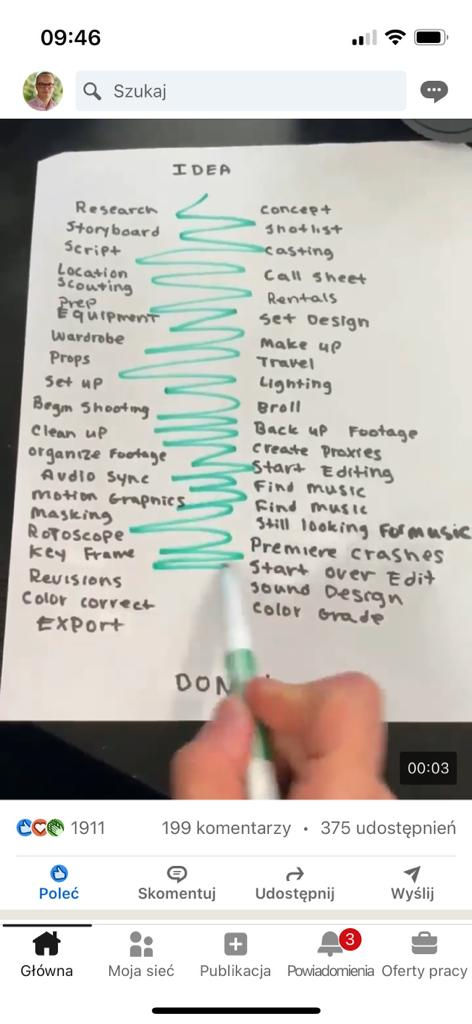 09:46
Szukaj
IDEA
Research
Concept
Storyboard
Shotlist
Script
Casting
Location
Scouting
Call Sheet
Prep
Equipment
Rentals
Set Design
Wardrobe
Make up
Props
Travel
Set up
Lighting
Begin Shooting
Broll
Clean up
Back up Footage
Organize Footage
Create Proxies
Audio Sync
Start Editing
Motion Graphics
Find music
Masking
Find music
Rotoscope
Still looking for music
Key Frame
Premiere crashes
Revisions
Start over Edit
Color correct
Sound Design
Export
Color Grade
00:03
1911
199 komentarzy • 375 udostępnień
Poleć
Skomentuj
Udostępnij
Wyślij
3
Główna
Moja sieć
Publikacja
Powiadomienia
Oferty pracy